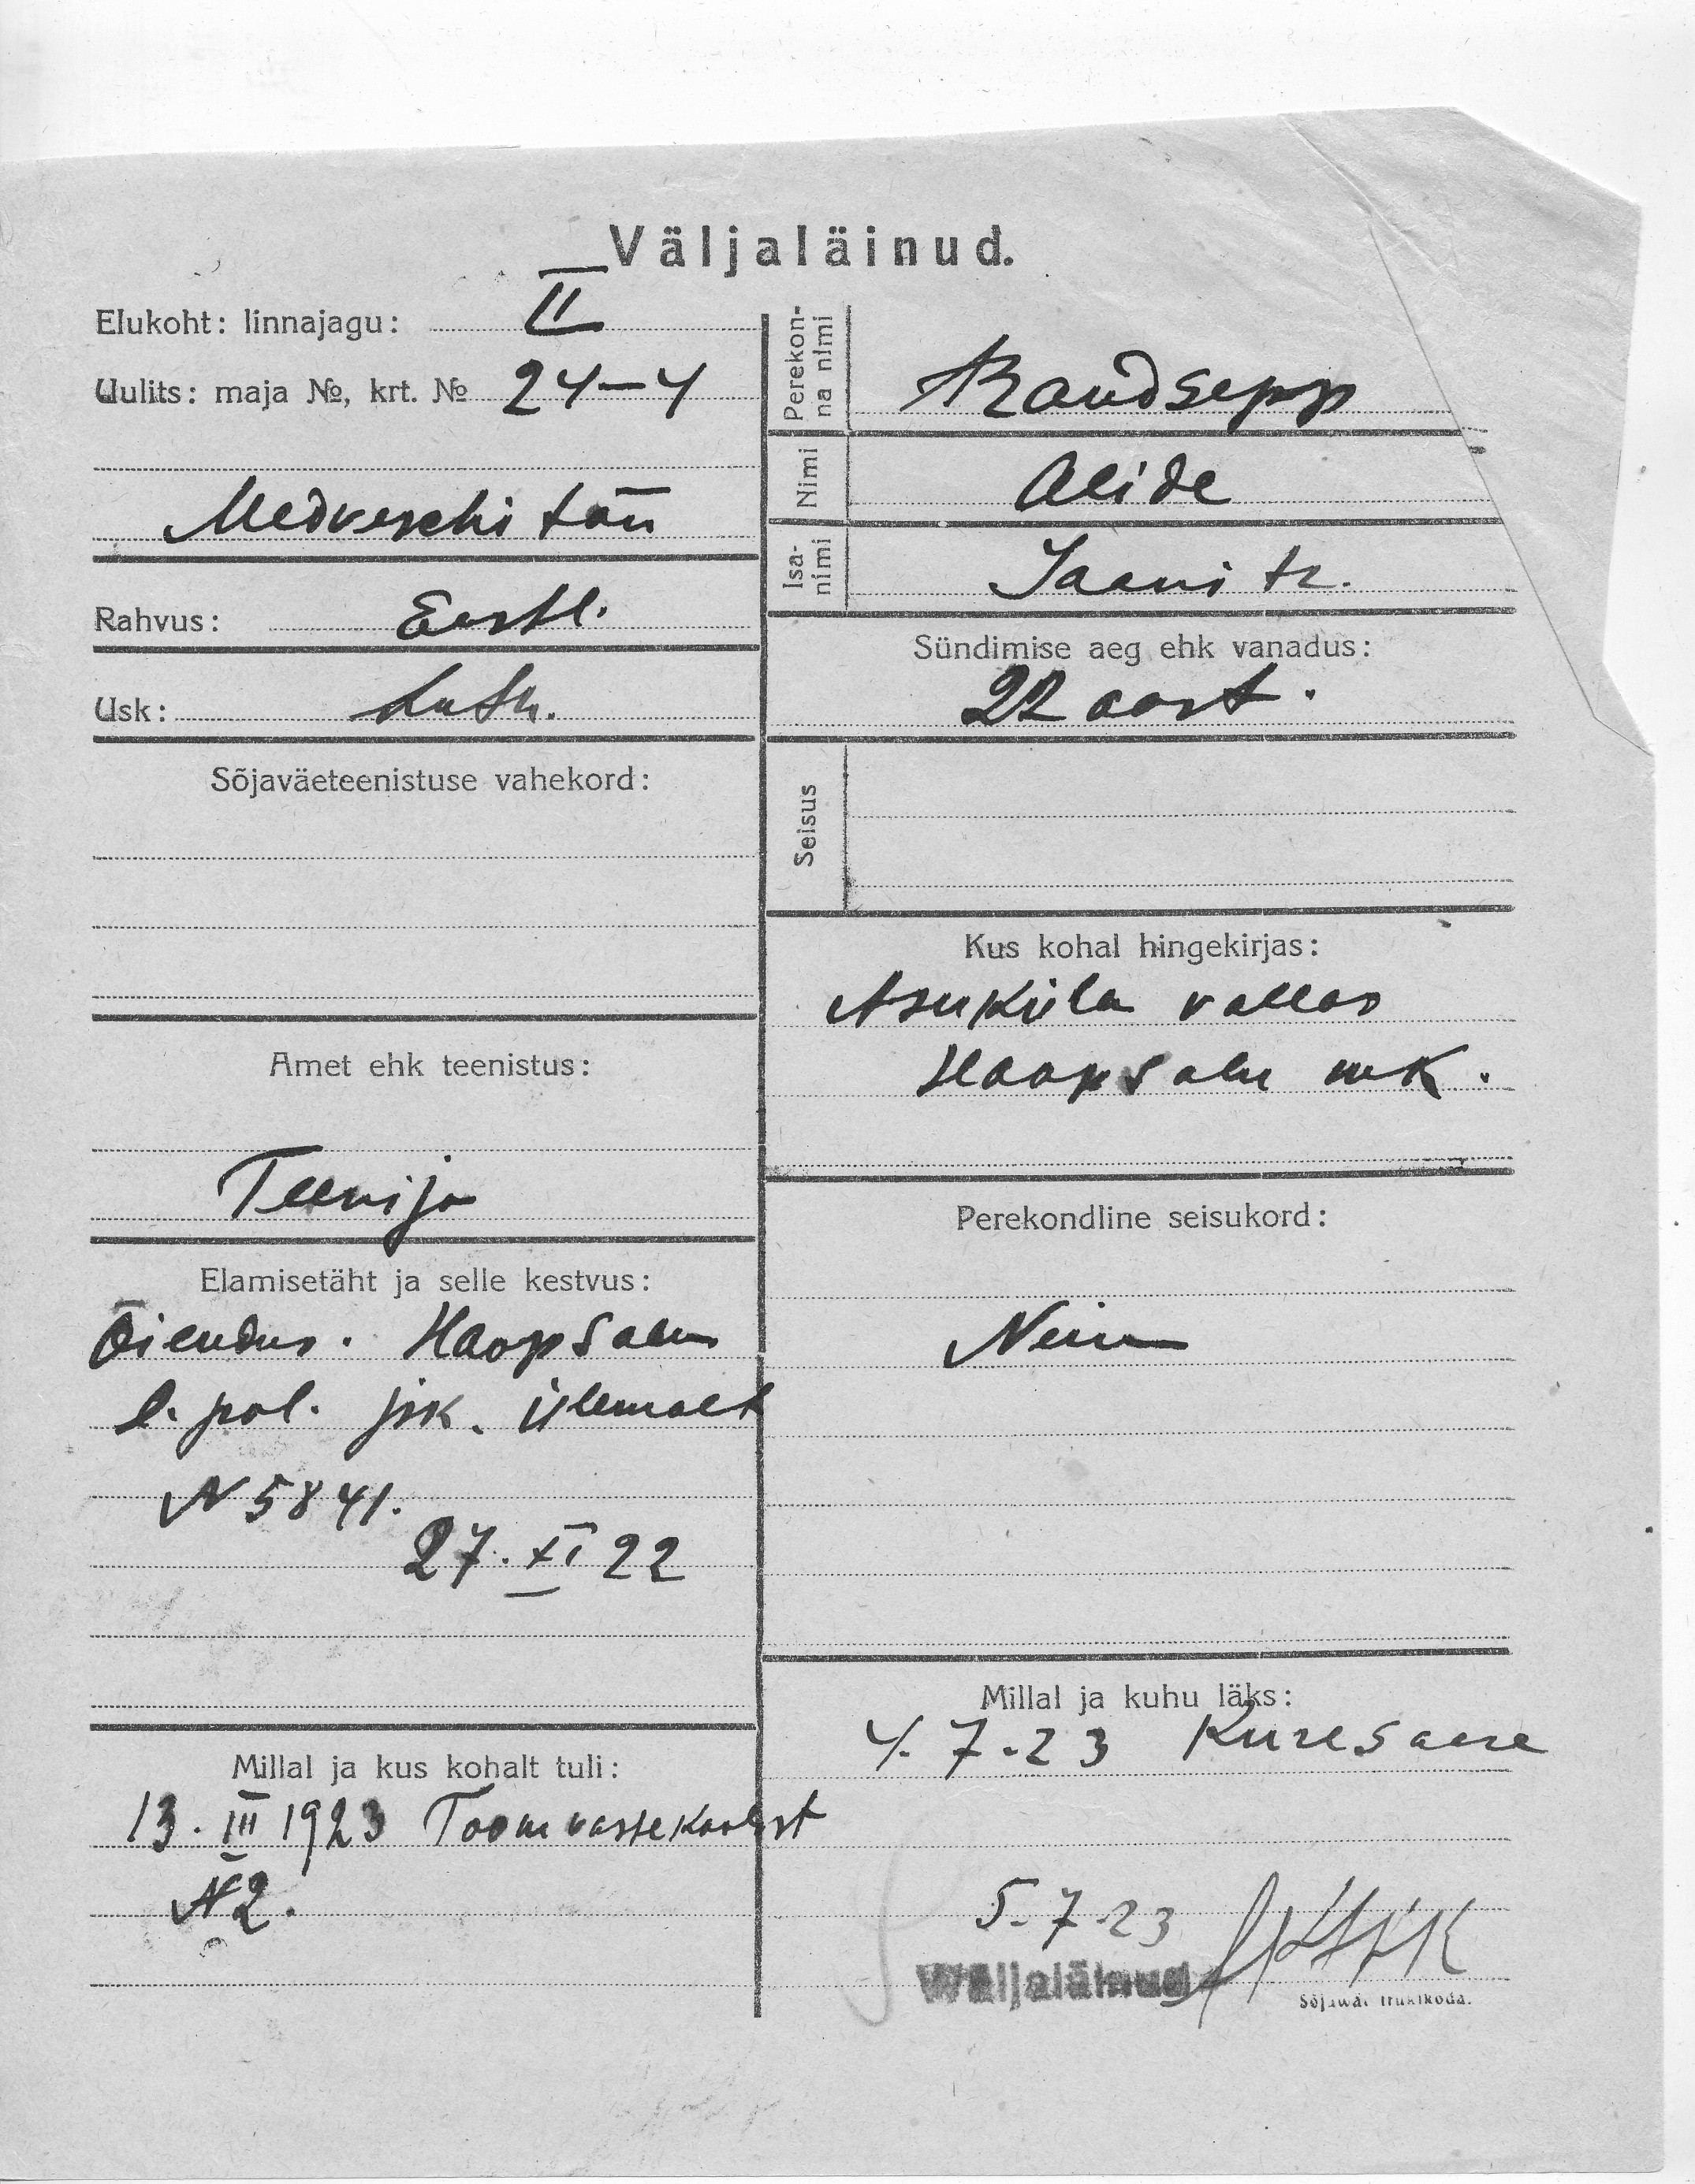 Väljaläinud.
Elukoht: linnajagu: II
Uulits: maja №, krt. № 24–4
Medveschi tän
Rahvus: Eestl.
Usk: Luth.
Sõjaväeteenistuse vahekord:
Amet ehk teenistus:
Teenija
Elamisetäht ja selle kestvus:
Õiendus. Haapsalu
l. pol. jsk. ülemalt
N 5841.
27. XI 22
Millal ja kus kohalt tuli:
13. III 1923
N 2.
Perekonna nimi
Raudsepp
Nimi
Alide
Isanimi
Jaani tr.
Sündimise aeg ehk vanadus:
22 aast.
Seisus
Kus kohal hingekirjas:
Asuküla vallas
Haapsalu mk.
Perekondline seisukord:
Neiu
Millal ja kuhu läks:
4. 7. 23 Kuresaare
5. 7. 23
Wäljaläinud
Sõjawäe trükikoda.